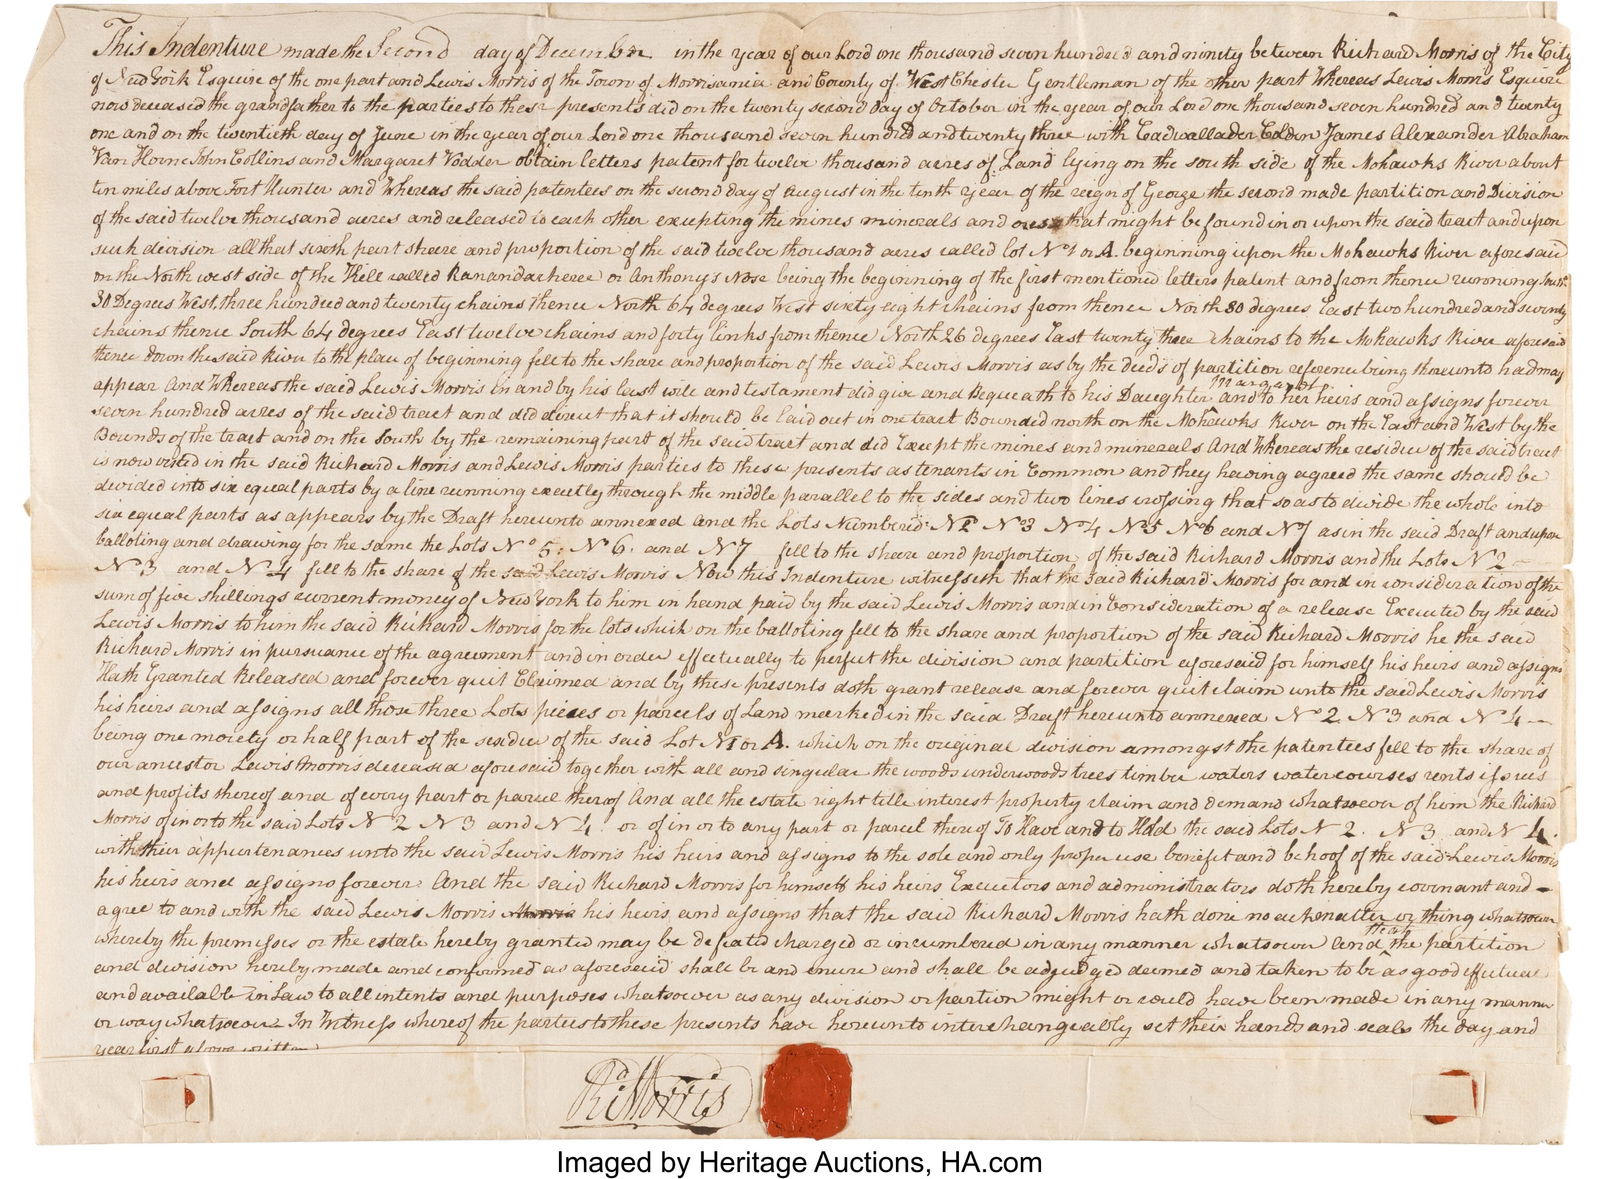 This Indenture made the Second day of December in the year of our Lord one thousand seven hundred and ninety between Richard Morris of the City
of New York Esquire of the one part and Lewis Morris of the Town of Morrisania and County of West Chester Gentleman of the other part Whereas Lewis Morris Esquire
now deceased the grandfather to the parties to these presents did on the twenty second day of October in the year of our Lord one thousand seven hundred and twenty
one and on the twentieth day of June in the year of our Lord one thousand seven hundred and twenty three with Cadwallader Colden James Alexander Abraham
Van Horne John Collins and Margaret Vedder obtain letters patent for twelve thousand acres of Land lying on the south side of the Mohawks River about
ten miles above Fort Hunter and Whereas the said patentees on the second day of August in the tenth year of the reign of George the second made partition and Division
of the said twelve thousand acres and released to each other excepting the mines minerals and ores that might be found in or upon the said tract and upon
such division all that sixth part share and proportion of the said twelve thousand acres called lot No 1 or A. beginning upon the Mohawks River aforesaid
on the North west side of the Hill called Kanandarheree or Anthony's Nose being the beginning of the first mentioned letters patent and from thence running South
30 Degrees West, three hundred and twenty chains thence North 64 degrees West sixty eight chains from thence North 30 degrees East two hundred and seventy
chains thence South 64 degrees East twelve chains and forty links from thence North 26 degrees East twenty three chains to the Mohawks River aforesaid
thence down the said River to the place of beginning fell to the share and proportion of the said Lewis Morris as by the deeds of partition reference being thereunto had may
appear And Whereas the said Lewis Morris in and by his last will and testament did give and Bequeath to his Daughter Margaret and to her heirs and assigns forever
seven hundred acres of the said tract and did direct that it should be laid out in one tract Bounded north on the Mohawks River on the East and West by the
Bounds of the tract and on the South by the remaining part of the said tract and did Except the mines and minerals And Whereas the residue of the said tract
is now vested in the said Richard Morris and Lewis Morris parties to these presents as tenants in Common and they having agreed the same should be
divided into six equal parts by a line running exactly through the middle parallel to the sides and two lines crossing that so as to divide the whole into
six equal parts as appears by the Draft hereunto annexed and the Lots Numbered No 2 No 3 No 4 No 5 No 6 and N 7 as in the said Draft and upon
balloting and drawing for the same the Lots No 5. No 6. and N 7 fell to the share and proportion of the said Richard Morris and the Lots No 2
No 3 and No 4 fell to the share of the said Lewis Morris Now this Indenture witnesseth that the said Richard Morris for and in consideration of the
sum of five shillings current money of New York to him in hand paid by the said Lewis Morris and in Consideration of a release Executed by the said
Lewis Morris to him the said Richard Morris for the lots which on the balloting fell to the share and proportion of the said Richard Morris he the said
Richard Morris in pursuance of the agreement and in order effectually to perfect the division and partition aforesaid for himself his heirs and assigns
Hath Granted Released and forever quit Claimed and by these presents doth grant release and forever quit claim unto the said Lewis Morris
his heirs and assigns all those three Lots pieces or parcels of Land marked in the said Draft hereunto annexed No 2 No 3 and No 4
being one moiety or half part of the residue of the said Lot No 1 or A. which on the original division amongst the patentees fell to the share of
our ancestor Lewis Morris deceased aforesaid together with all and singular the woods underwoods trees timber waters watercourses rents issues
and profits thereof and of every part or parcel thereof And all the estate right title interest property claim and demand whatsoever of him the Richard
Morris of in or to the said Lots N 2 N 3 and N 4. or of in or to any part or parcel thereof To Have and to Hold the said Lots N 2. N 3 and N 4.
with their appurtenances unto the said Lewis Morris his heirs and assigns to the sole and only proper use benefit and behoof of the said Lewis Morris
his heirs and assigns forever And the said Richard Morris for himself his heirs Executors and administrators doth hereby covenant and
agree to and with the said Lewis Morris Morris his heirs and assigns that the said Richard Morris hath done no act matter or thing whatsoever
whereby the premisses or the estate hereby granted may be defeated charged or incumbered in any manner whatsoever and that the partition
and division hereby made and confirmed as aforesaid shall be and enure and shall be adjudged deemed and taken to be as good effectual
and available in Law to all intents and purposes whatsoever as any division or partion might or could have been made in any manner
or way whatsoever In Witness whereof the parties to these presents have hereunto interchangeably set their hands and seals the day and
year first above written
Rd Morris
Imaged by Heritage Auctions, HA.com